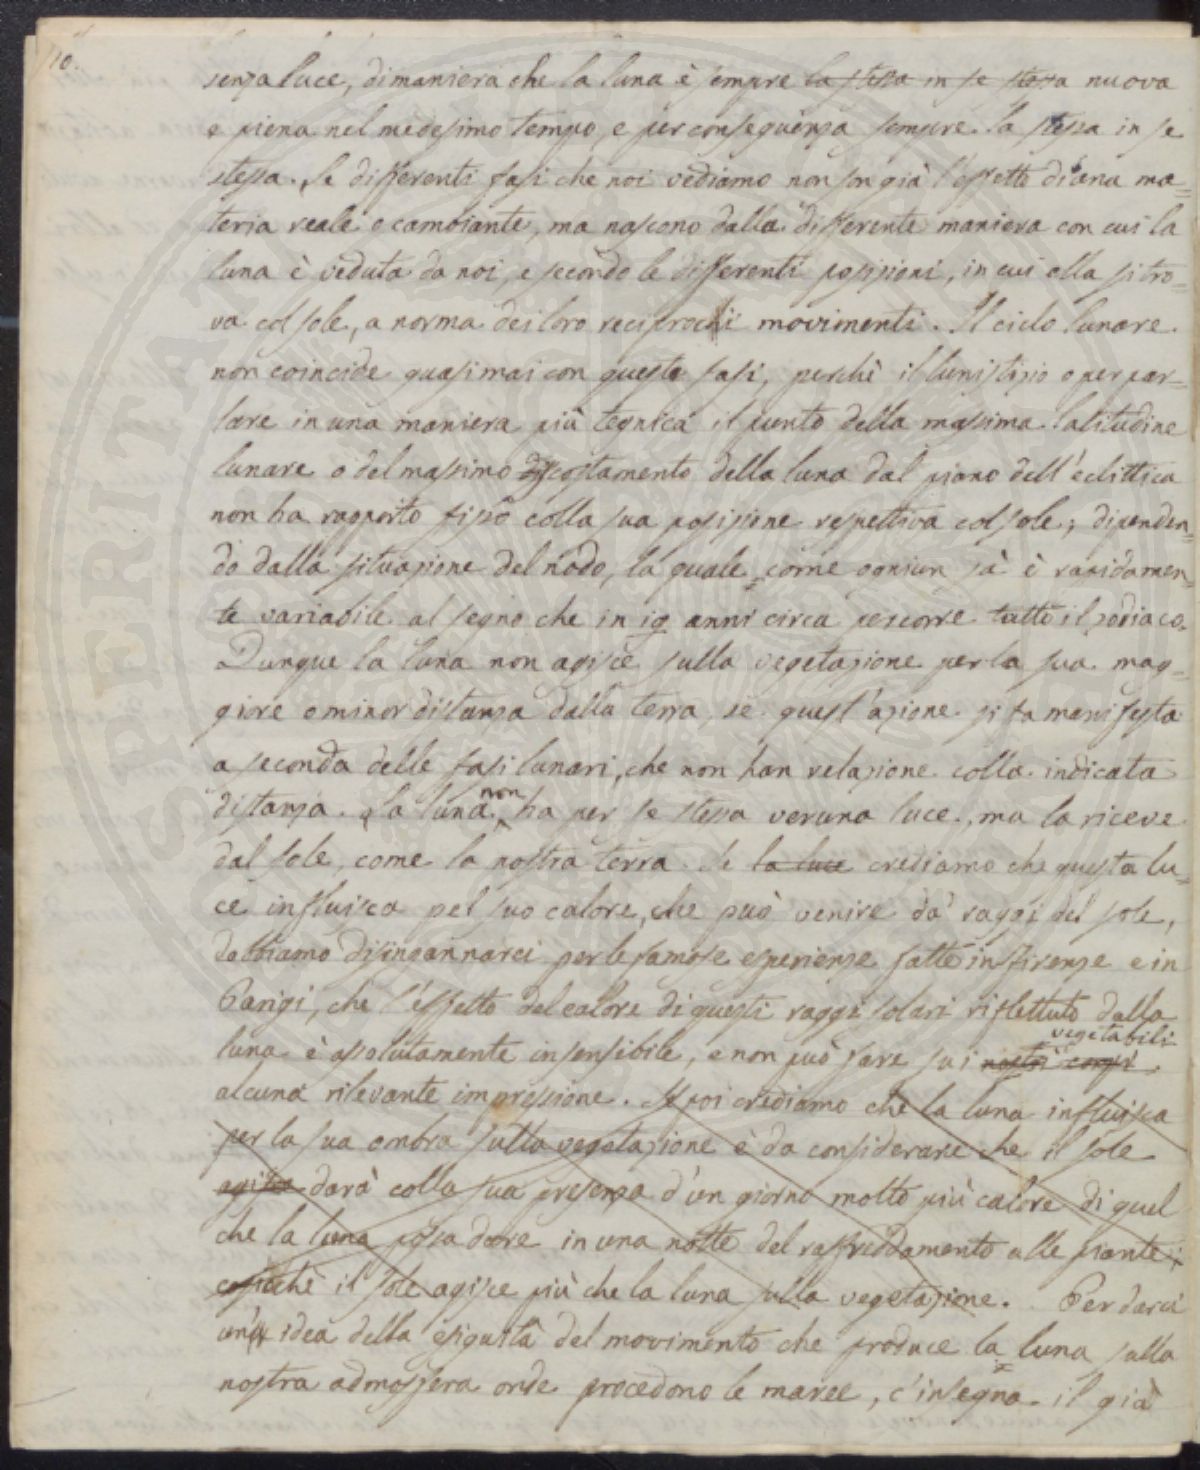 10.
senza luce, di maniera che la luna è sempre la stessa in se stessa nuova
e piena nel medesimo tempo, e per conseguenza sempre la stessa in se
stessa. Le differenti fasi che noi vediamo non son già l'effetto d'una ma=
teria reale o cambiante, ma nascono dalla differente maniera con cui la
luna è veduta da noi, e secondo le differenti posizioni, in cui ella si tro=
va col sole, a norma dei loro reciprochi movimenti. Il ciclo lunare
non coincide quasi mai con queste fasi, perchè il lunistizio o per par=
lare in una maniera più tegnica il punto della massima latitudine
lunare o del massimo discostamento della luna dal piano dell'eclittica
non ha rapporto fisso colla sua posizione respettiva col sole; dipenden=
do dalla situazione del nodo, la quale, come ogniun sà è rapidamen=
te variabile al segno che in 19 anni circa percorre tutto il zodiaco.
Dunque la luna non agisce sulla vegetazione per la sua mag=
giore o minor distanza dalla terra, se quest'azione si fa manifesta
a seconda delle fasi lunari, che non han relazione colla indicata
distanza. La luna non ha per se stessa veruna luce, ma la riceve
dal sole, come la nostra terra. Se la luce crediamo che questa lu=
ce influisca pel suo calore, che può venire da' raggi del sole,
dobbiamo disingannarci per le famose esperienze fatte in Firenze e in
Parigi, che l'effetto del calore di questi raggi solari riflettuto dalla
luna è assolutamente insensibile, e non può fare sui nostri corpi vegetabili
alcuna rilevante impressione. Se poi crediamo che la luna influisca
per la sua ombra sulla vegetazione è da considerare che il sole
agisca darà colla sua presenza d'un giorno molto più calore di quel
che la luna possa dare in una notte del raffreddamento alle piante;
cosicchè il sole agisce più che la luna sulla vegetazione. Per darci
un' idea della esiguità del movimento che produce la luna sulla
nostra admosfera onde procedono le maree, c'insegna il già
SPERITAT